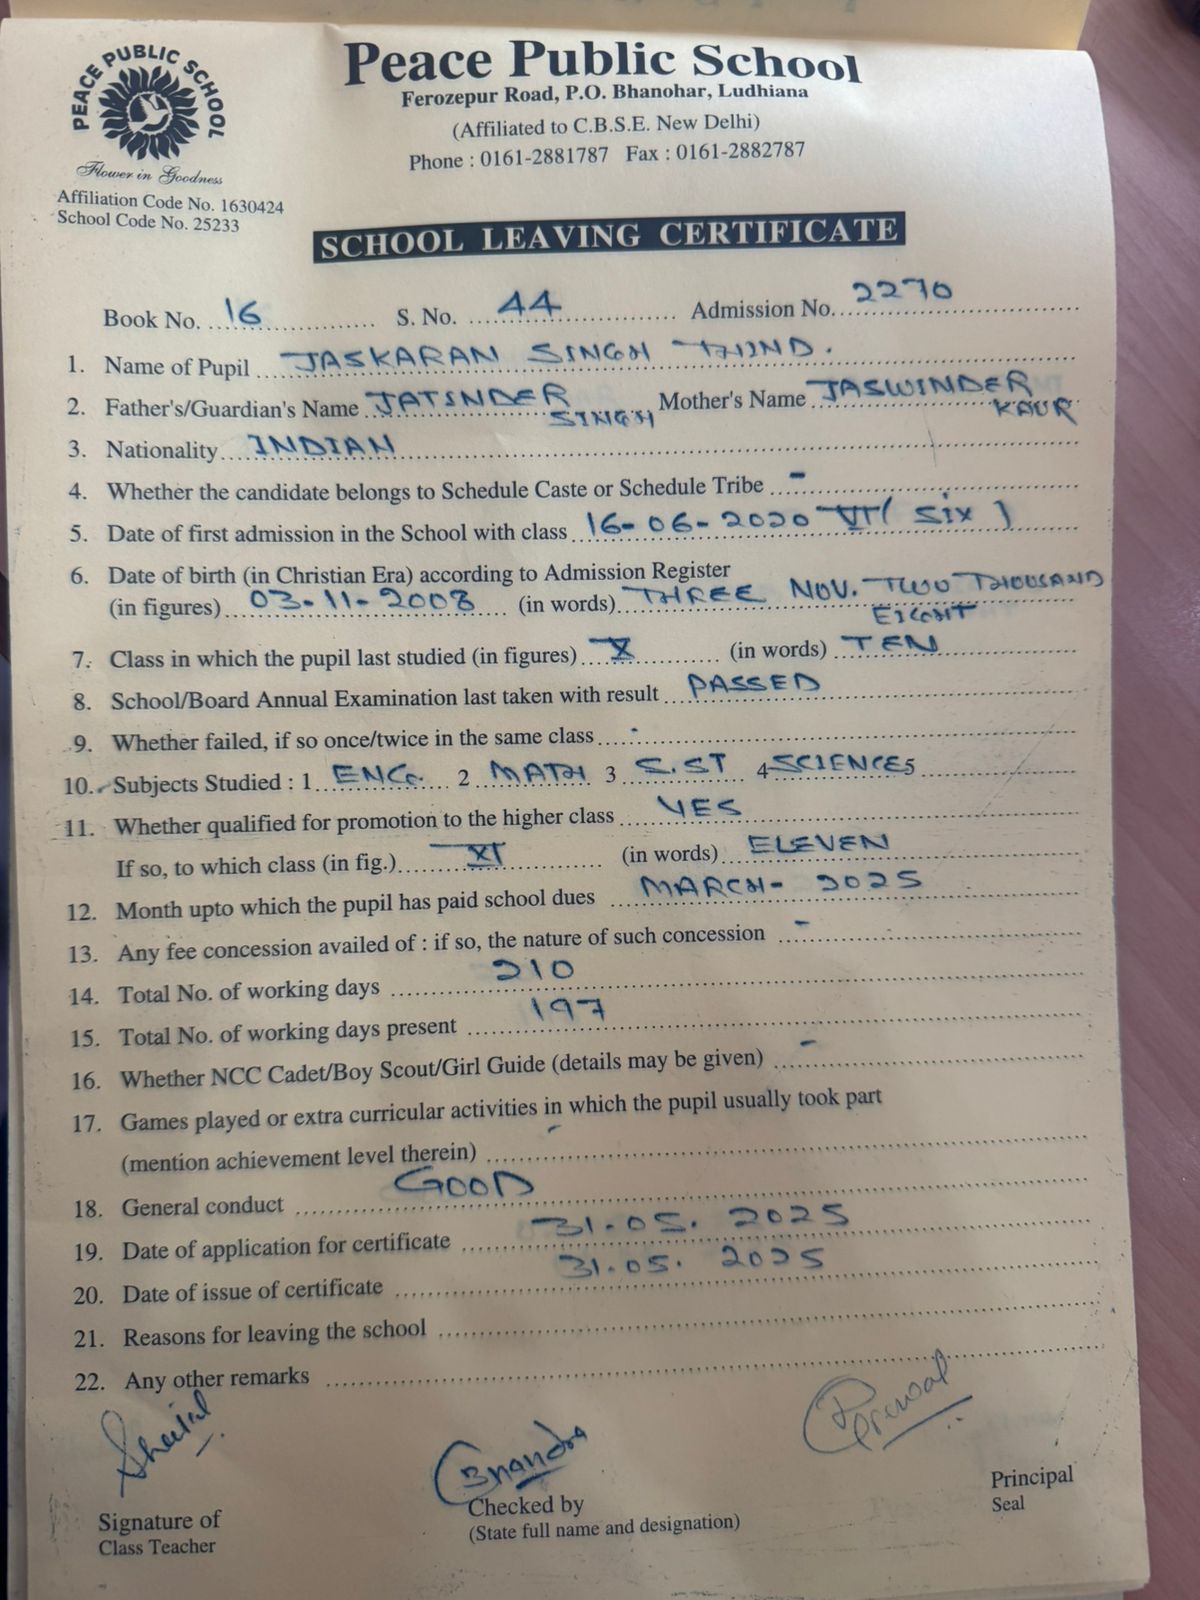 PEACE PUBLIC SCHOOL
Flower in Goodness
Affiliation Code No. 1630424
School Code No. 25233
Peace Public School
Ferozepur Road, P.O. Bhanohar, Ludhiana
(Affiliated to C.B.S.E. New Delhi)
Phone : 0161-2881787 Fax : 0161-2882787
SCHOOL LEAVING CERTIFICATE
Book No. 16 S. No. 44 Admission No. 2270
1. Name of Pupil JASKARAN SINGH THIND.
2. Father's/Guardian's Name JATINDER SINGH Mother's Name JASWINDER KAUR
3. Nationality INDIAN
4. Whether the candidate belongs to Schedule Caste or Schedule Tribe -
5. Date of first admission in the School with class 16-06-2020 VI ( SIX )
6. Date of birth (in Christian Era) according to Admission Register
(in figures) 03-11-2008 (in words) THREE NOV. TWO THOUSAND EIGHT
7. Class in which the pupil last studied (in figures) X (in words) TEN
8. School/Board Annual Examination last taken with result PASSED
9. Whether failed, if so once/twice in the same class -
10. Subjects Studied : 1 ENG. 2 MATH 3 S.ST 4 SCIENCE 5
11. Whether qualified for promotion to the higher class YES
If so, to which class (in fig.) XI (in words) ELEVEN
12. Month upto which the pupil has paid school dues MARCH- 2025
13. Any fee concession availed of : if so, the nature of such concession -
14. Total No. of working days 210
15. Total No. of working days present 197
16. Whether NCC Cadet/Boy Scout/Girl Guide (details may be given) -
17. Games played or extra curricular activities in which the pupil usually took part
(mention achievement level therein) -
18. General conduct GOOD
19. Date of application for certificate 31.05.2025
20. Date of issue of certificate 31.05.2025
21. Reasons for leaving the school
22. Any other remarks
Signature of
Class Teacher
Checked by
(State full name and designation)
Principal
Seal